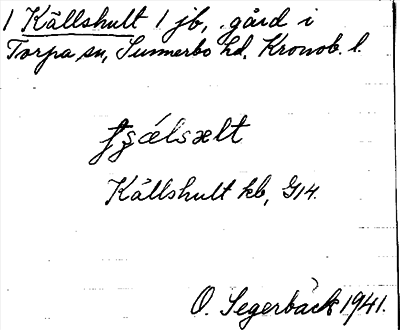 1 Källshult 1 jb, gård i
Torpa sn, Sunnerbo hd, Kronob. l.
Källshult kb, G14.
O. Segerbäck 1941.